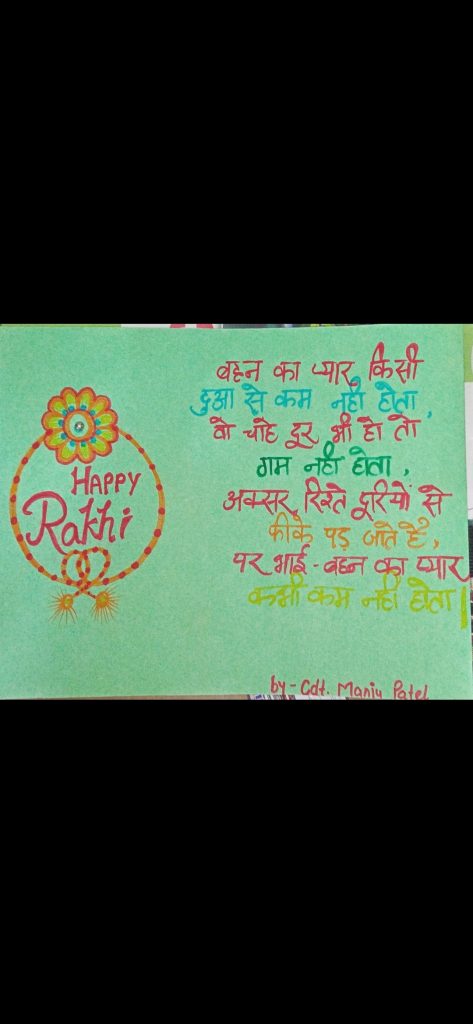 HAPPY
Rakhi
बहन का प्यार किसी
दुआ से कम नहीं होता,
वो चाहे दूर भी हो तो
गम नहीं होता,
अक्सर रिश्ते दूरियों से
फीके पड़ जाते हैं,
पर भाई-बहन का प्यार
कभी कम नहीं होता|
by - Cdt. Manju Patel